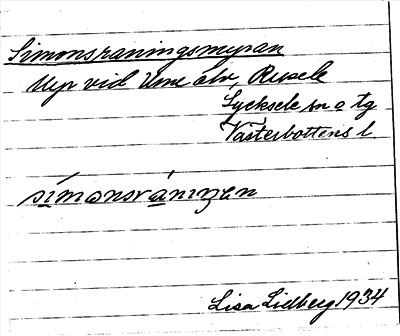 Simonsraningsmyran
Myr vid Ume älv, Rusele
Lycksele sn o tg
Västerbottens l
simonsráningen
Lisa Lidberg 1934